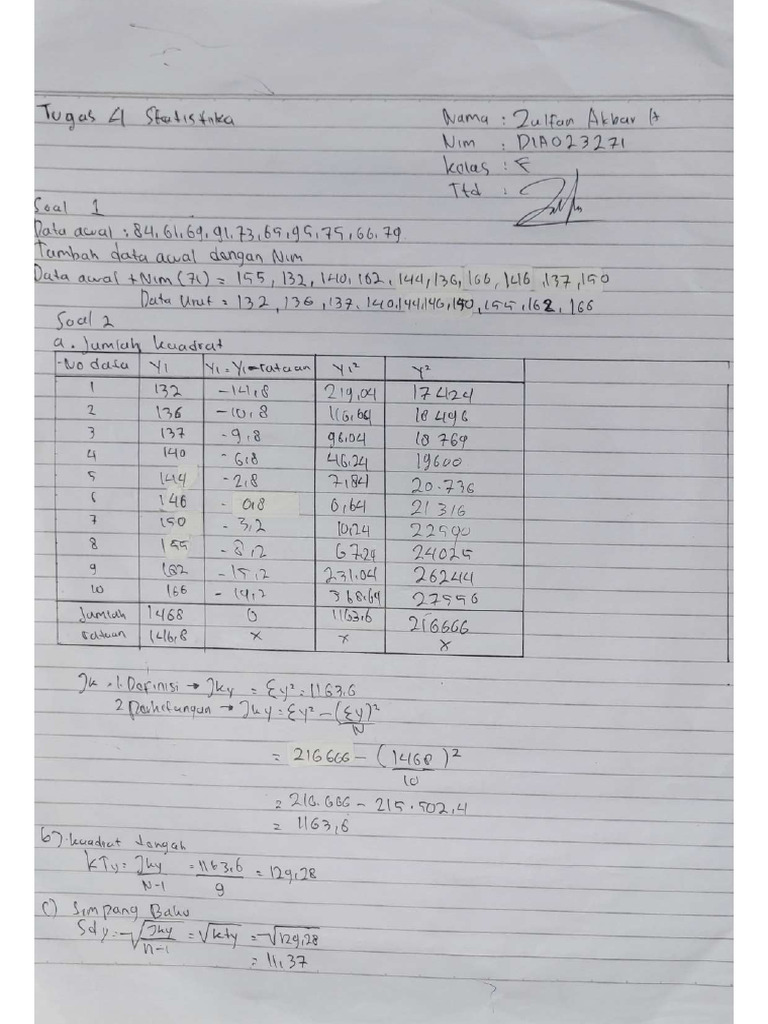 Tugas 4 Statistika
Nama : Zulfan Akbar A
Nim : D1A023271
Kelas : F
Ttd :
Soal 1
Data awal : 84, 61, 69, 91, 73, 65, 95, 75, 66, 79
Tambah data awal dengan Nim
Data awal + Nim (71) = 155, 132, 140, 162, 144, 136, 166, 146, 137, 150
Data Urut = 132, 136, 137, 140, 144, 146, 150, 155, 162, 166
Soal 2
a. Jumlah kuadrat
No data Y1 Y1 = Y1-rataan Y1² Y²
1 132 -14,8 219,04 17424
2 136 -10,8 116,64 18496
3 137 -9,8 96.04 18769
4 140 -6,8 46,24 19600
5 144 -2,8 7,84 20.736
6 146 -0,8 0,64 21316
7 150 -3,2 10,24 22500
8 155 -8,2 67,24 24025
9 162 -15,2 231.04 26244
10 166 -19,2 368,64 27556
Jumlah 1468 0 1163,6 216666
rataan 146,8 x x x
Jk = 1. Definisi → Jky = Σy² = 1163,6
2 Perhitungan → Jky = Σy² - (Σy)²
N
= 216666 - (1468)²
10
= 216.666 - 215.502,4
= 1163,6
b) kuadrat tengah
KTy = Jky = 1163,6 = 129,28
N-1 9
c) Simpang Baku
Sdy = √Jky = √kty = √129,28
n-1
= 11,37